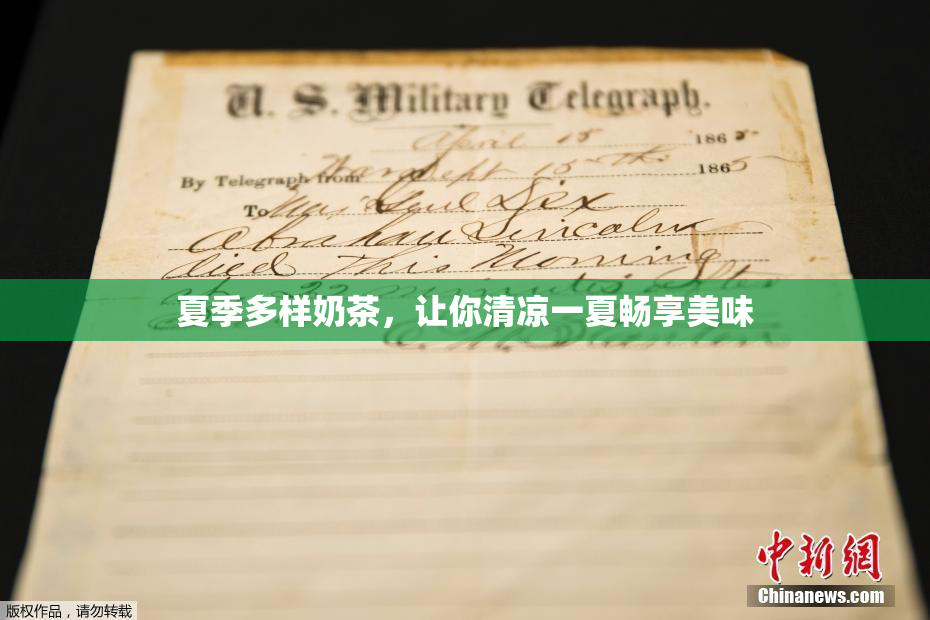 U. S. Military Telegraph.
April 15 1865
By Telegraph from War Dept 15th 1865
To Maj Genl Dix
Abraham Lincoln
died This Morning
at 22 minutes after
夏季多样奶茶，让你清凉一夏畅享美味
E. M. Stanton
中新网
Chinanews.com
版权作品，请勿转载